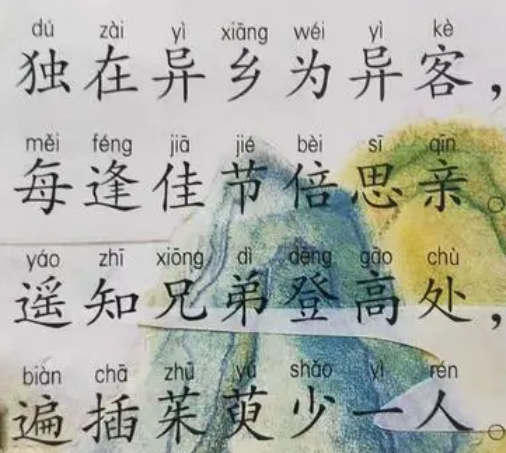 dú zài yì xiāng wéi yì kè
独在异乡为异客，
měi féng jiā jié bèi sī qīn
每逢佳节倍思亲。
yáo zhī xiōng dì dēng gāo chù
遥知兄弟登高处，
biàn chā zhū yú shǎo yì rén
遍插茱萸少一人。